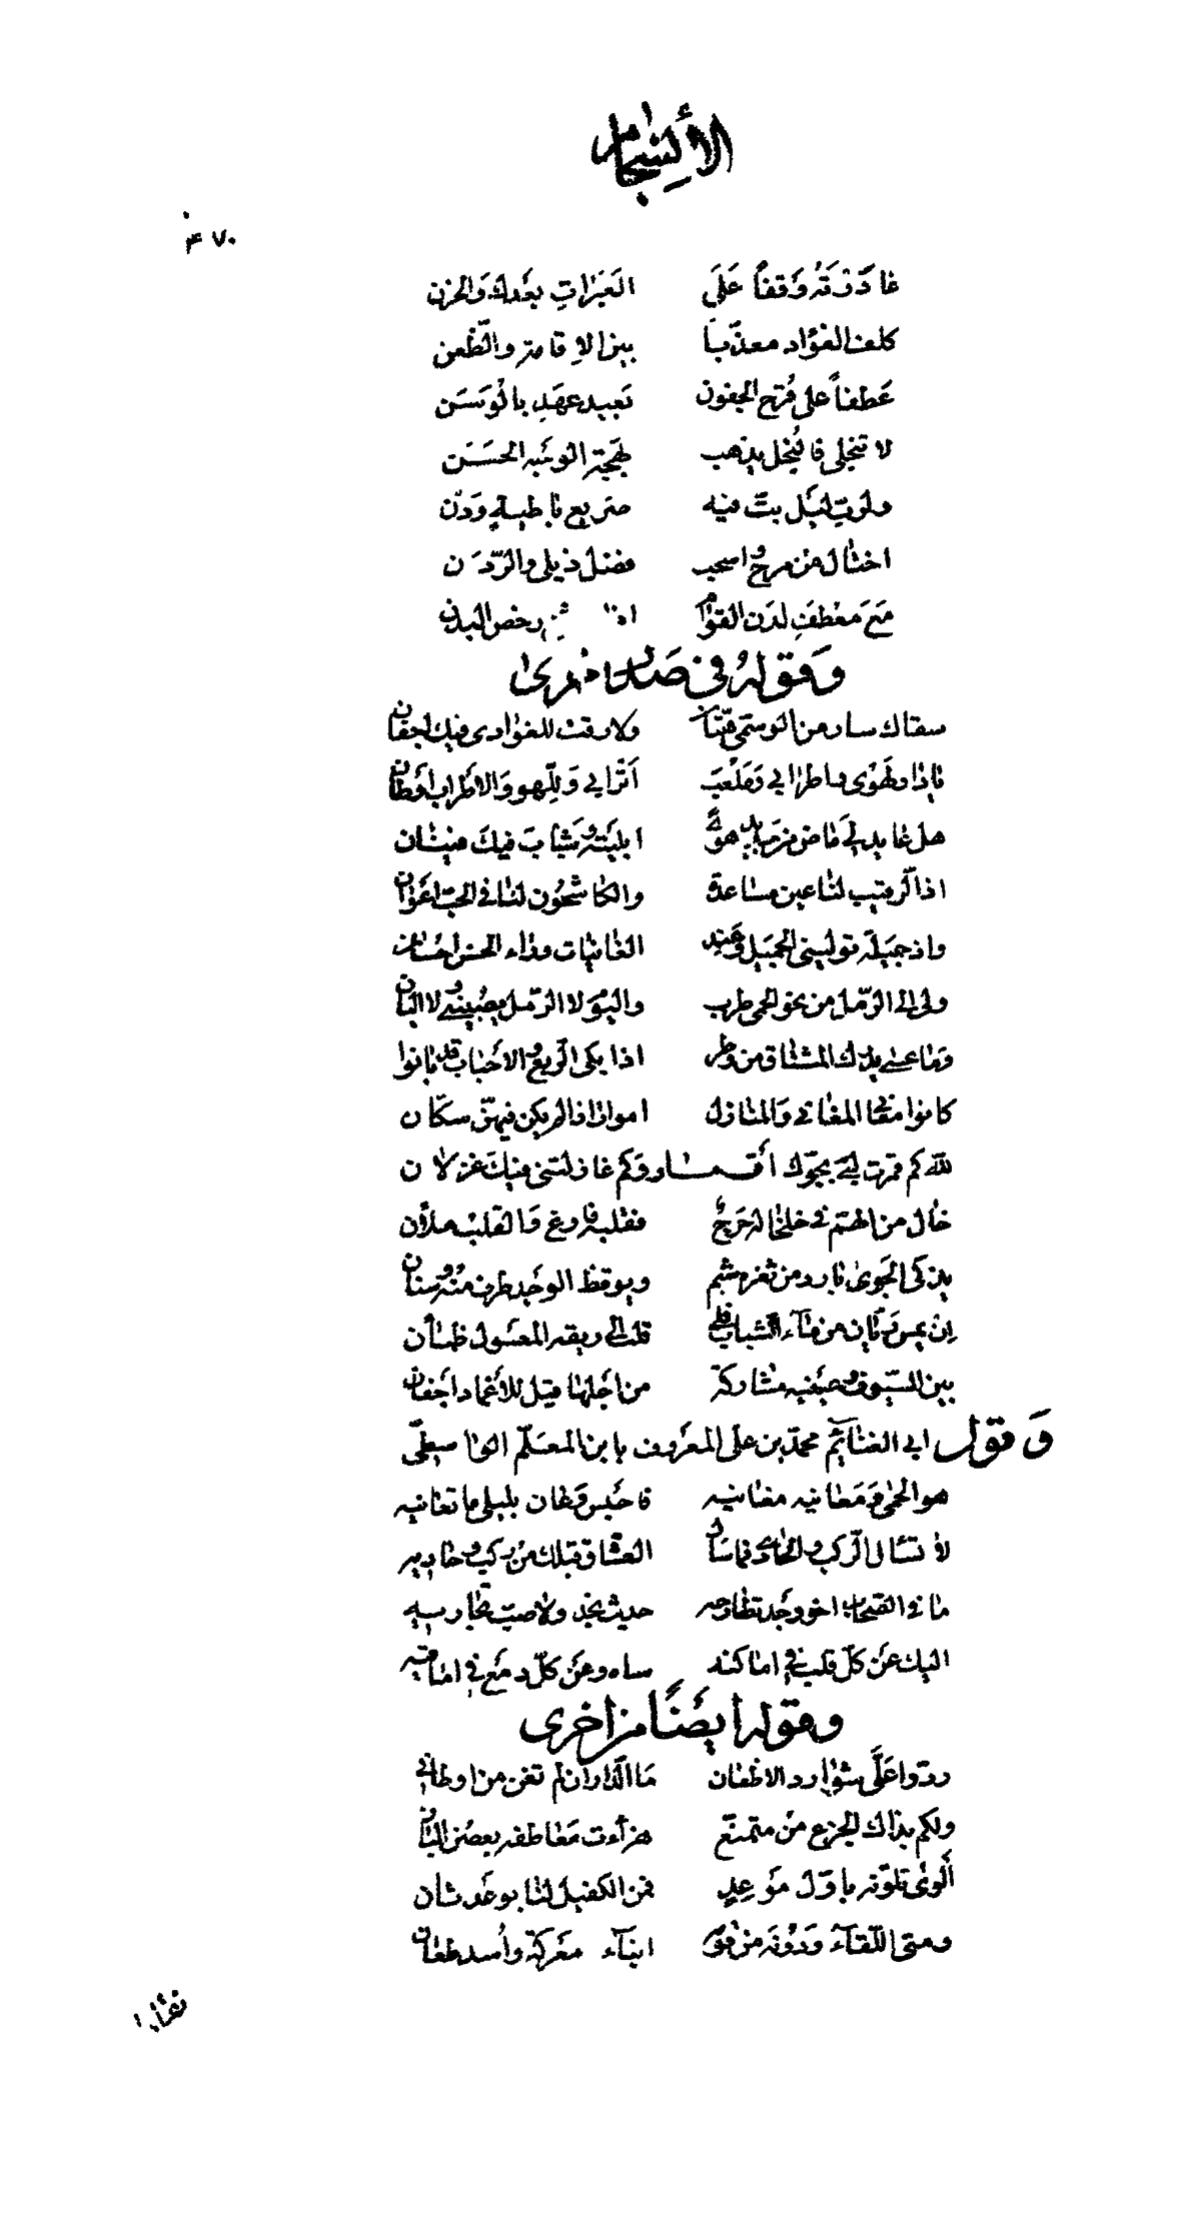 الأنسجام
٤٧٠
غادرته وقفاً على العبرات بعدك والحزن
كلف الفؤاد معذّبا بين الاقامة والظعن
عطفاً على قرح الجفون بعيد عهد بالوسن
لا تبخلي فالبخل يذهب بهجة الوجه الحسن
ولرب ليل بتّ فيه صريع باطية ودن
اختال من مرح واسحب فضل ذيلي والردن
مع معطف لدن القوام رخص البدن
وقوله في صدر اخرى
سقاك سار من الوسمي هتّان ولا رقت للغوادى فيك اجفان
يا دار لهوى واطرابي وملعب أترابي وللهو والاطراب أوطان
هل عائد لي ماض من جديد هوى ابليته وشباب فيك فينان
اذ الرقيب لنا عين مساعدة والكاشحون لنا في الحب اعوان
واذ جميلة توليني الجميل وعند الغانيات وراء الحسن احسان
ولى الى الرمل من نحو الحمى طرب واليوم لا الرمل يصبيني ولا البان
وما عسى يدرك المشتاق من وطر اذا بكى الربع والاحباب قد بانوا
كانوا معاني المغاني والمنازل اموات اذا لم يكن فيهن سكان
لله كم قمرت لبي بجوك أقمار وكم غازلتني فيك غزلان
خال من الهم في خلخاله حرج فقلبه فارغ والقلب ملآن
يذكى الجوى بارد من ثغره شبم ويوقظ الوجد طرف منه وسنان
ان يمس ريان من ماء الشباب فلي قلب الى ريقه المعسول ظمآن
بين السيوف وعينيه مشاركة من اجلها قيل للاغماد أجفان
وقول ابي الغنائم محمد بن علي المعروف بابن المعلم الواسطي
هو الحمى ومغانيه مغانيه فاحبس وعان بليلى ما تعانيه
لا تسأل الركب والحادي فما سأل العشاق قبلك من ركب وحاديه
ما في الصحاب اخو وجد تطارحه حديث نجد ولا صب تجاريه
اليك عن كل قلب في اماكنه ساه وعن كل دمع في اماقيه
وقوله أيضاً من اخرى
ردوا على شوارد الاظعان ما الدار ان لم تغن من اوطاني
ولكم بذاك الجزع من متمنع هزأت معاطفه بغصن البان
ألوى تلونه باول موعد فمن الكفيل لنا بوعد ثان
ومتى اللقآء ودونه من قومه ابنآء معركة وأسد طعان